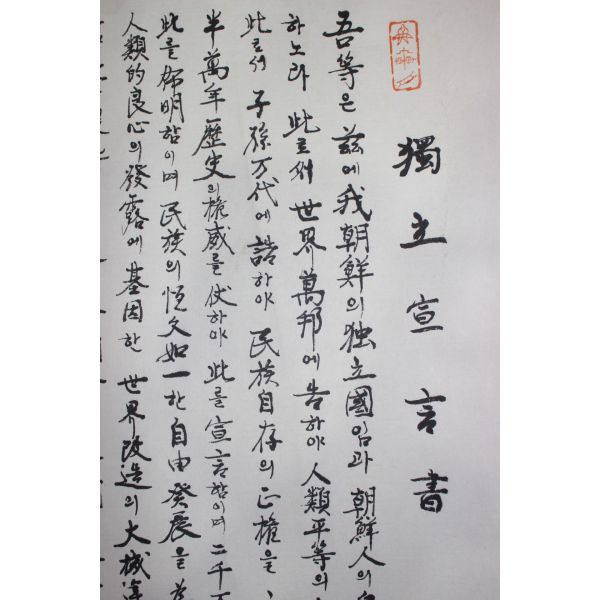 獨立宣言書
吾等은 玆에 我 朝鮮의 独立國임과 朝鮮人의
하노라 此로써 世界萬邦에 告하야 人類平等의
此로써 子孫万代에 誥하야 民族自存의 正權을
半萬年歷史의 權威를 仗하야 此를 宣言함이며 二千
此를 佈明함이며 民族의 恒久如一한 自由發展을
人類的良心의 發露에 基因한 世界改造의 大機